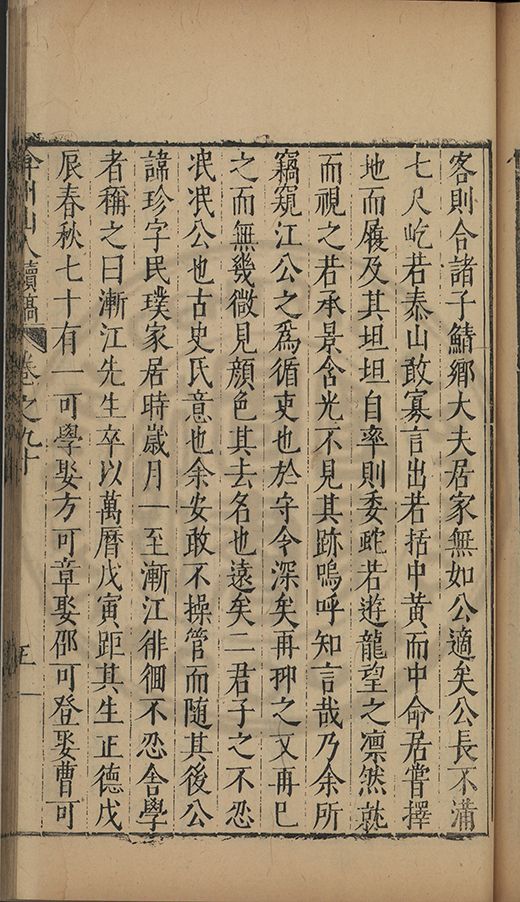 客則合諸子鯖鄉大夫居家無如公適矣公長不滿
七尺屹若泰山敢寡言出若括中黃而中命居嘗擇
地而履及其坦坦自率則委虵若遊龍望之凛然就
而視之若承景含光不見其跡嗚呼知言哉乃余所
竊窺江公之爲循吏也於守令深矣再抑之又再已
之而無幾微見顏色其去名也遠矣二君子之不忍
泯泯公也古史氏意也余安敢不操管而隨其後公
諱珍字民璞家居時歲月一至漸江徘徊不忍舍學
者稱之曰漸江先生卒以萬曆戊寅距其生正德戊
辰春秋七十有一可學娶方可章娶邵可登娶曹可
弇州山人續稿 卷之九十 五